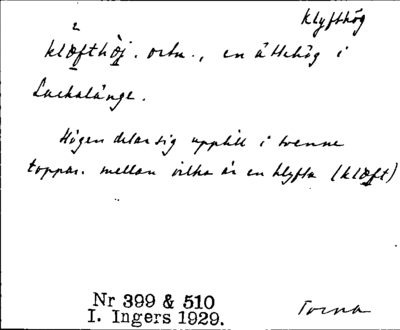 Klyfthög
2
klæfthöj. ortn., en ättehög i
Lackalänge.
Högen delar sig upptill i tvenne
toppar. mellan vilka är en klyfta (klæft)
Nr 399 & 510
I. Ingers 1929.
Torna